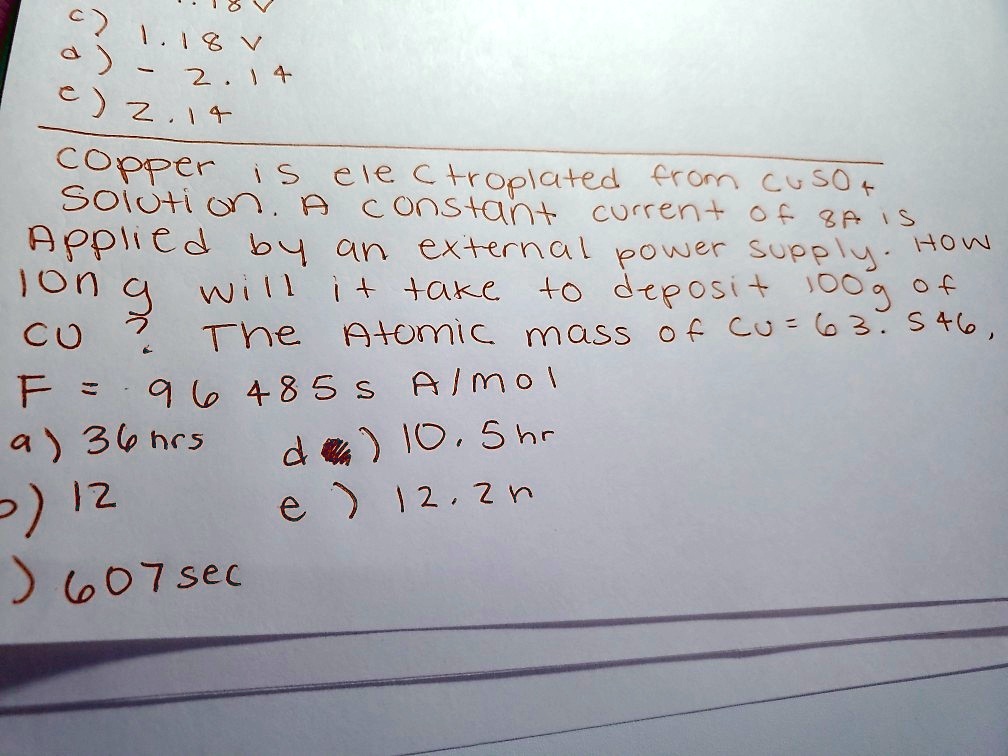 c) 1.18 V
d) - 2.14
e) 2.14
copper is electroplated from CuSO4
Solution. A constant current of 8A is
Applied by an external power supply. How
long will it take to deposit 100g of
CU ? The Atomic mass of CU = 63.546,
F = 96 485 s A/mol
a) 36 hrs d) 10.5 hr
b) 12 e) 12.2 h
) 607 sec